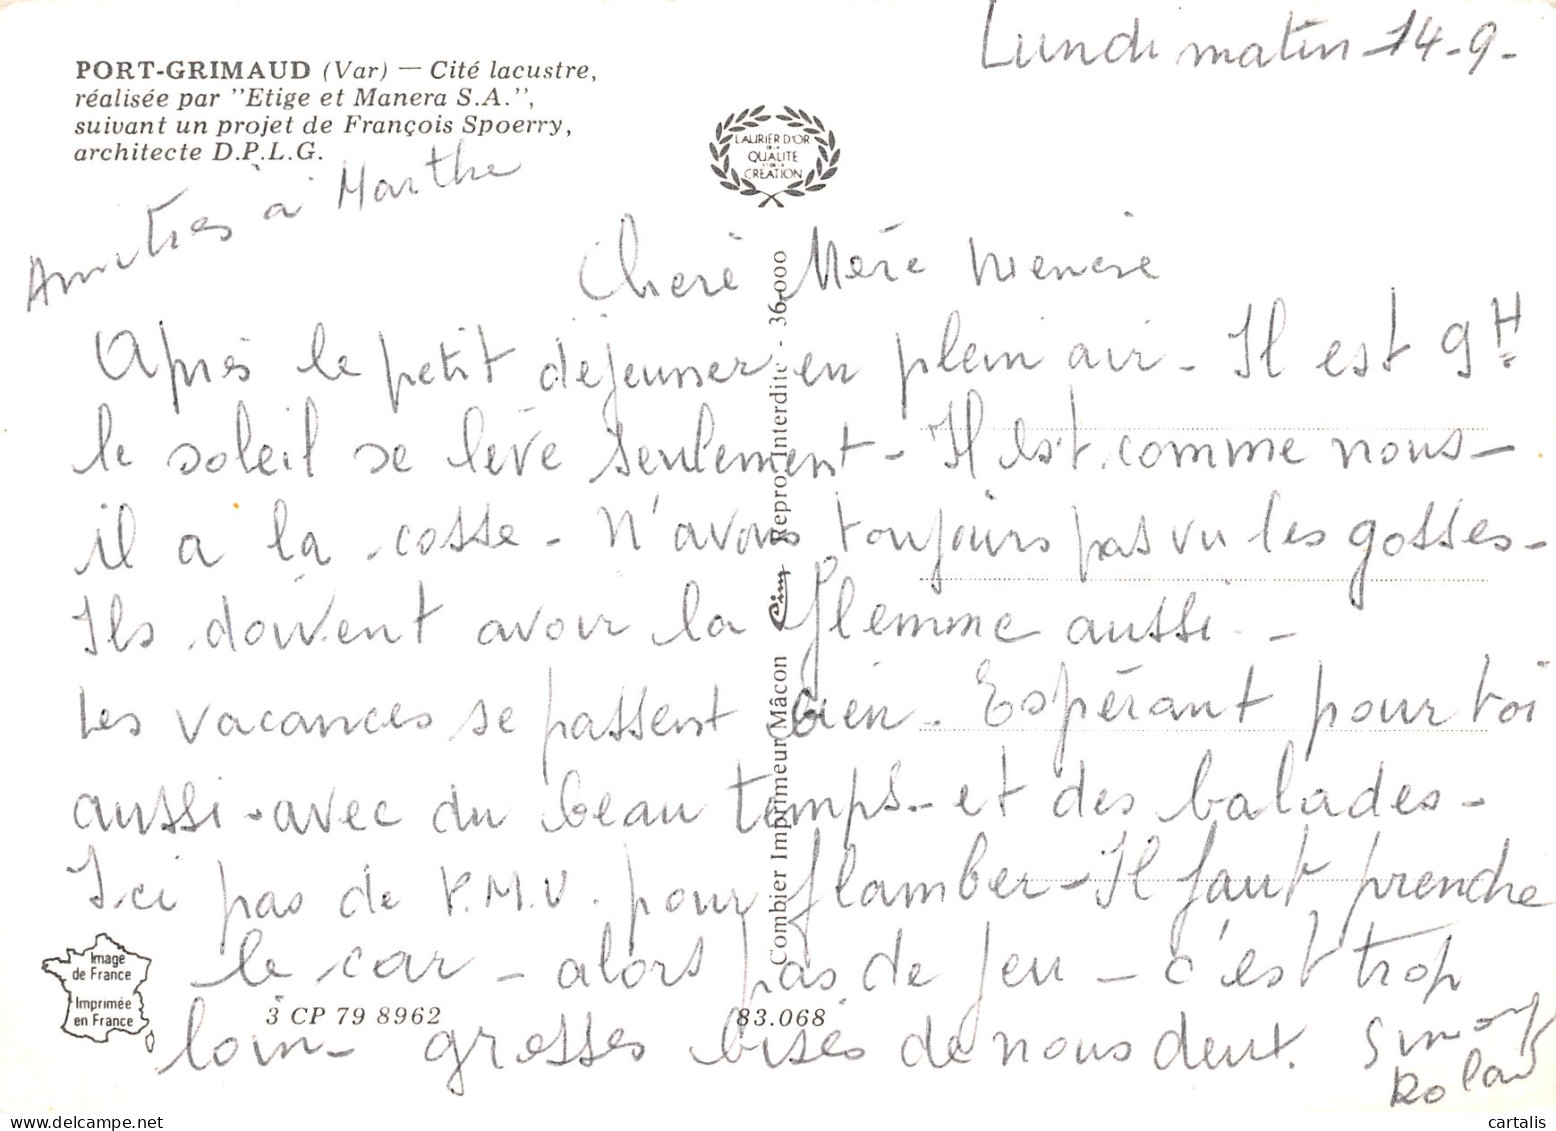 Lundi matin 14-9-
PORT-GRIMAUD (Var) — Cité lacustre,
réalisée par "Etige et Manera S.A.",
suivant un projet de François Spoerry,
architecte D.P.L.G.
LAURIER D'OR
DE LA
QUALITE
CREATION
Amitiés à Marthe
Cheré Mère
Après le petit déjeuner en plein air - Il est 9H
le soleil se lève seulement - Il est comme nous -
il a la cosse - N'avons toujours pas vu les gosses -
Ils doivent avoir la flemme aussi -
Les vacances se passent bien. Espérant pour toi
aussi - avec du beau temps - et des balades -
Ici pas de P.M.U. pour flamber - Il faut prendre
le car - alors pas de jeu - c'est trop
loin - grosses bises de nous deux.
Roland
Combier Imprimeur Mâcon Cim Repro Interdite - 36.000
Image
de France
Imprimée
en France
3 CP 79 8962
83.068
cartalis